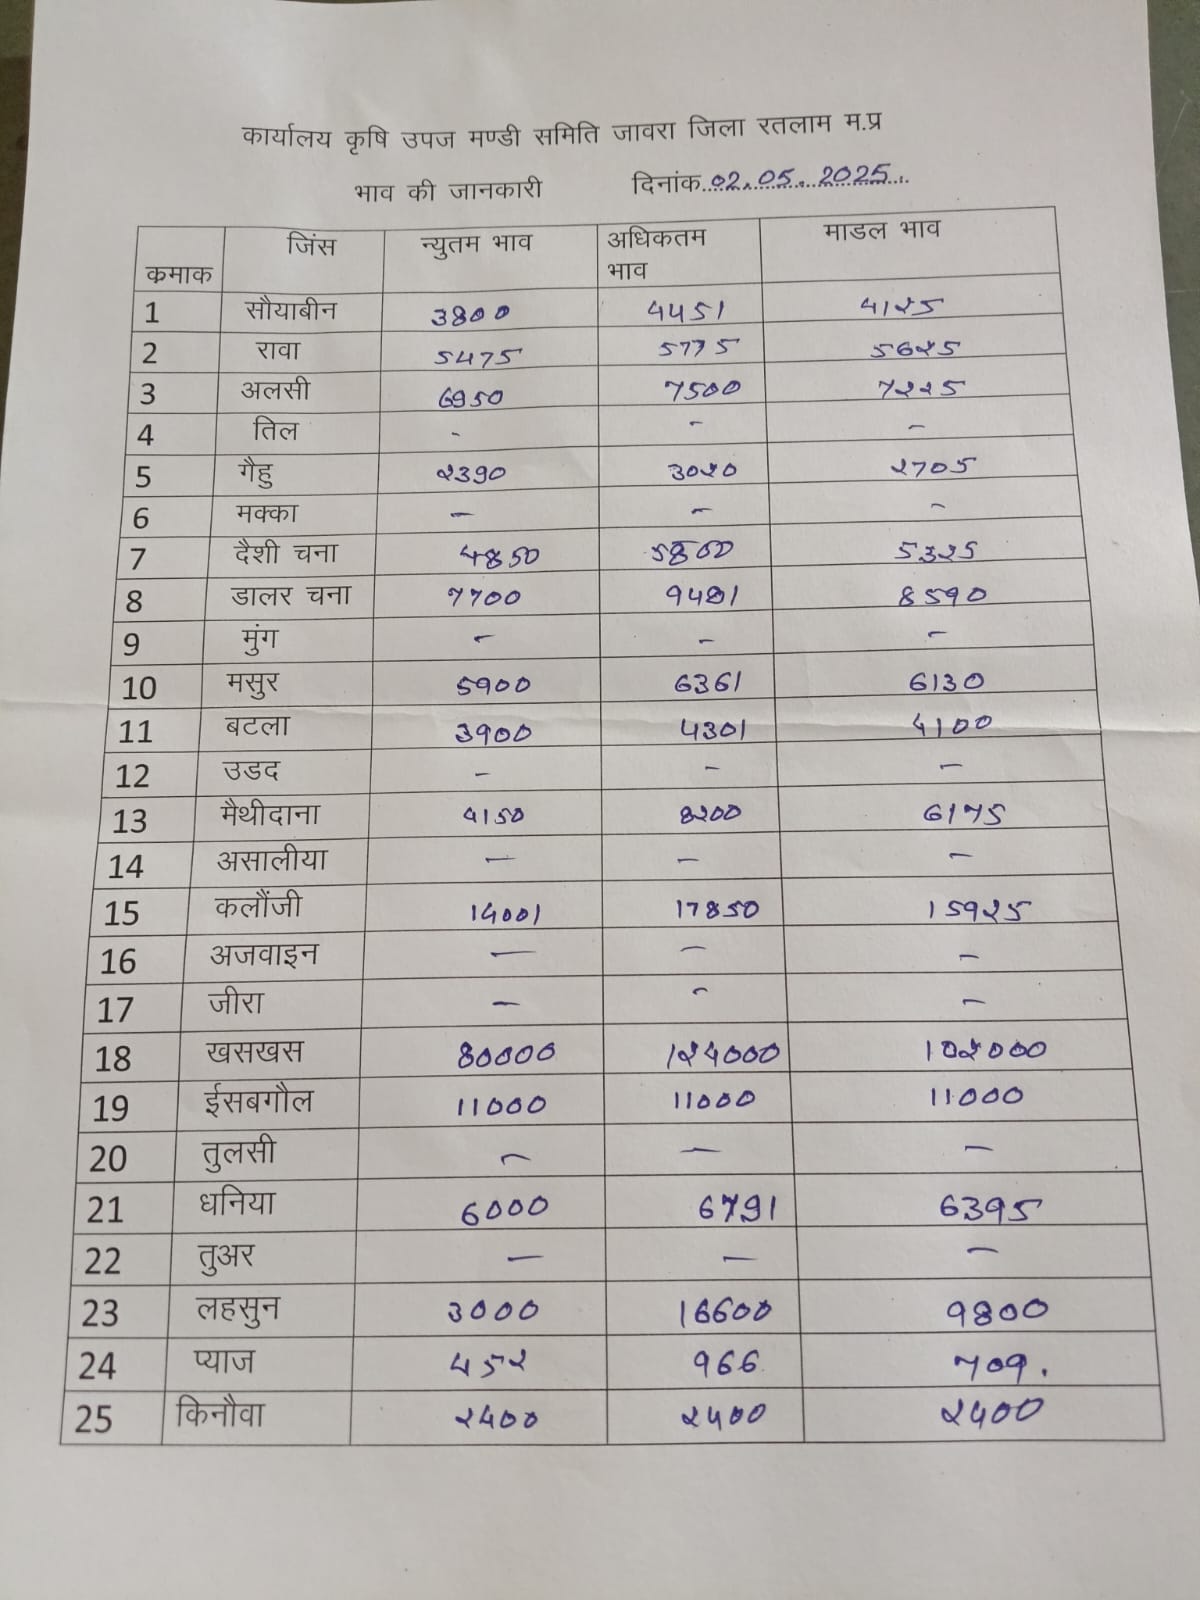 कार्यालय कृषि उपज मण्डी समिति जावरा जिला रतलाम म.प्र
भाव की जानकारी दिनांक..02.05.2025..
कमाक जिंस न्युतम भाव अधिकतम भाव माडल भाव
1 सौयाबीन 3800 4451 4125
2 रावा 5475 5775 5625
3 अलसी 6950 7500 7225
4 तिल - - -
5 गैहु 2390 3020 2705
6 मक्का - - -
7 दैशी चना 4850 5800 5325
8 डालर चना 7700 9481 8590
9 मुंग - - -
10 मसुर 5900 6361 6130
11 बटला 3900 4301 4100
12 उडद - - -
13 मैथीदाना 4150 8200 6175
14 असालीया - - -
15 कलौंजी 14001 17850 15925
16 अजवाइन - - -
17 जीरा - - -
18 खसखस 80000 124000 102000
19 ईसबगौल 11000 11000 11000
20 तुलसी - - -
21 धनिया 6000 6791 6395
22 तुअर - - -
23 लहसुन 3000 16600 9800
24 प्याज 452 966 709.
25 किनौवा 2400 2400 2400